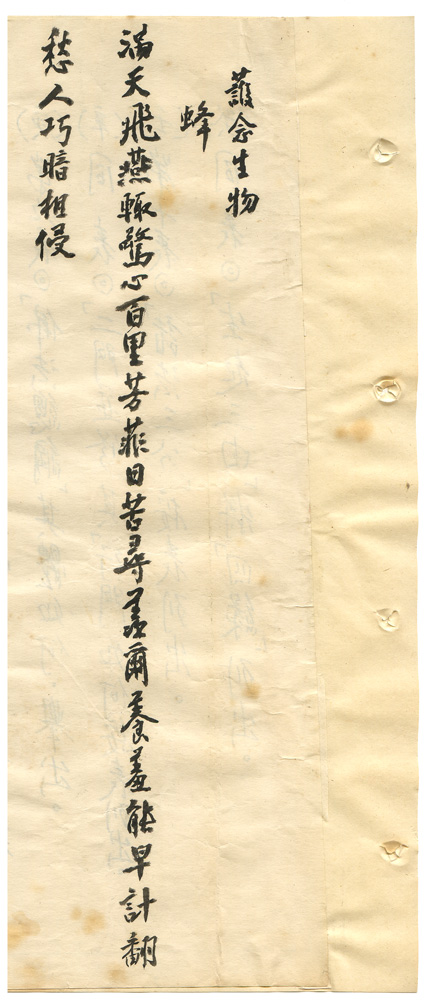 護念生物
蜂
滿天飛燕輒驚心百里芳菲日苦尋羨爾養羞能早計翻
愁人巧暗相侵